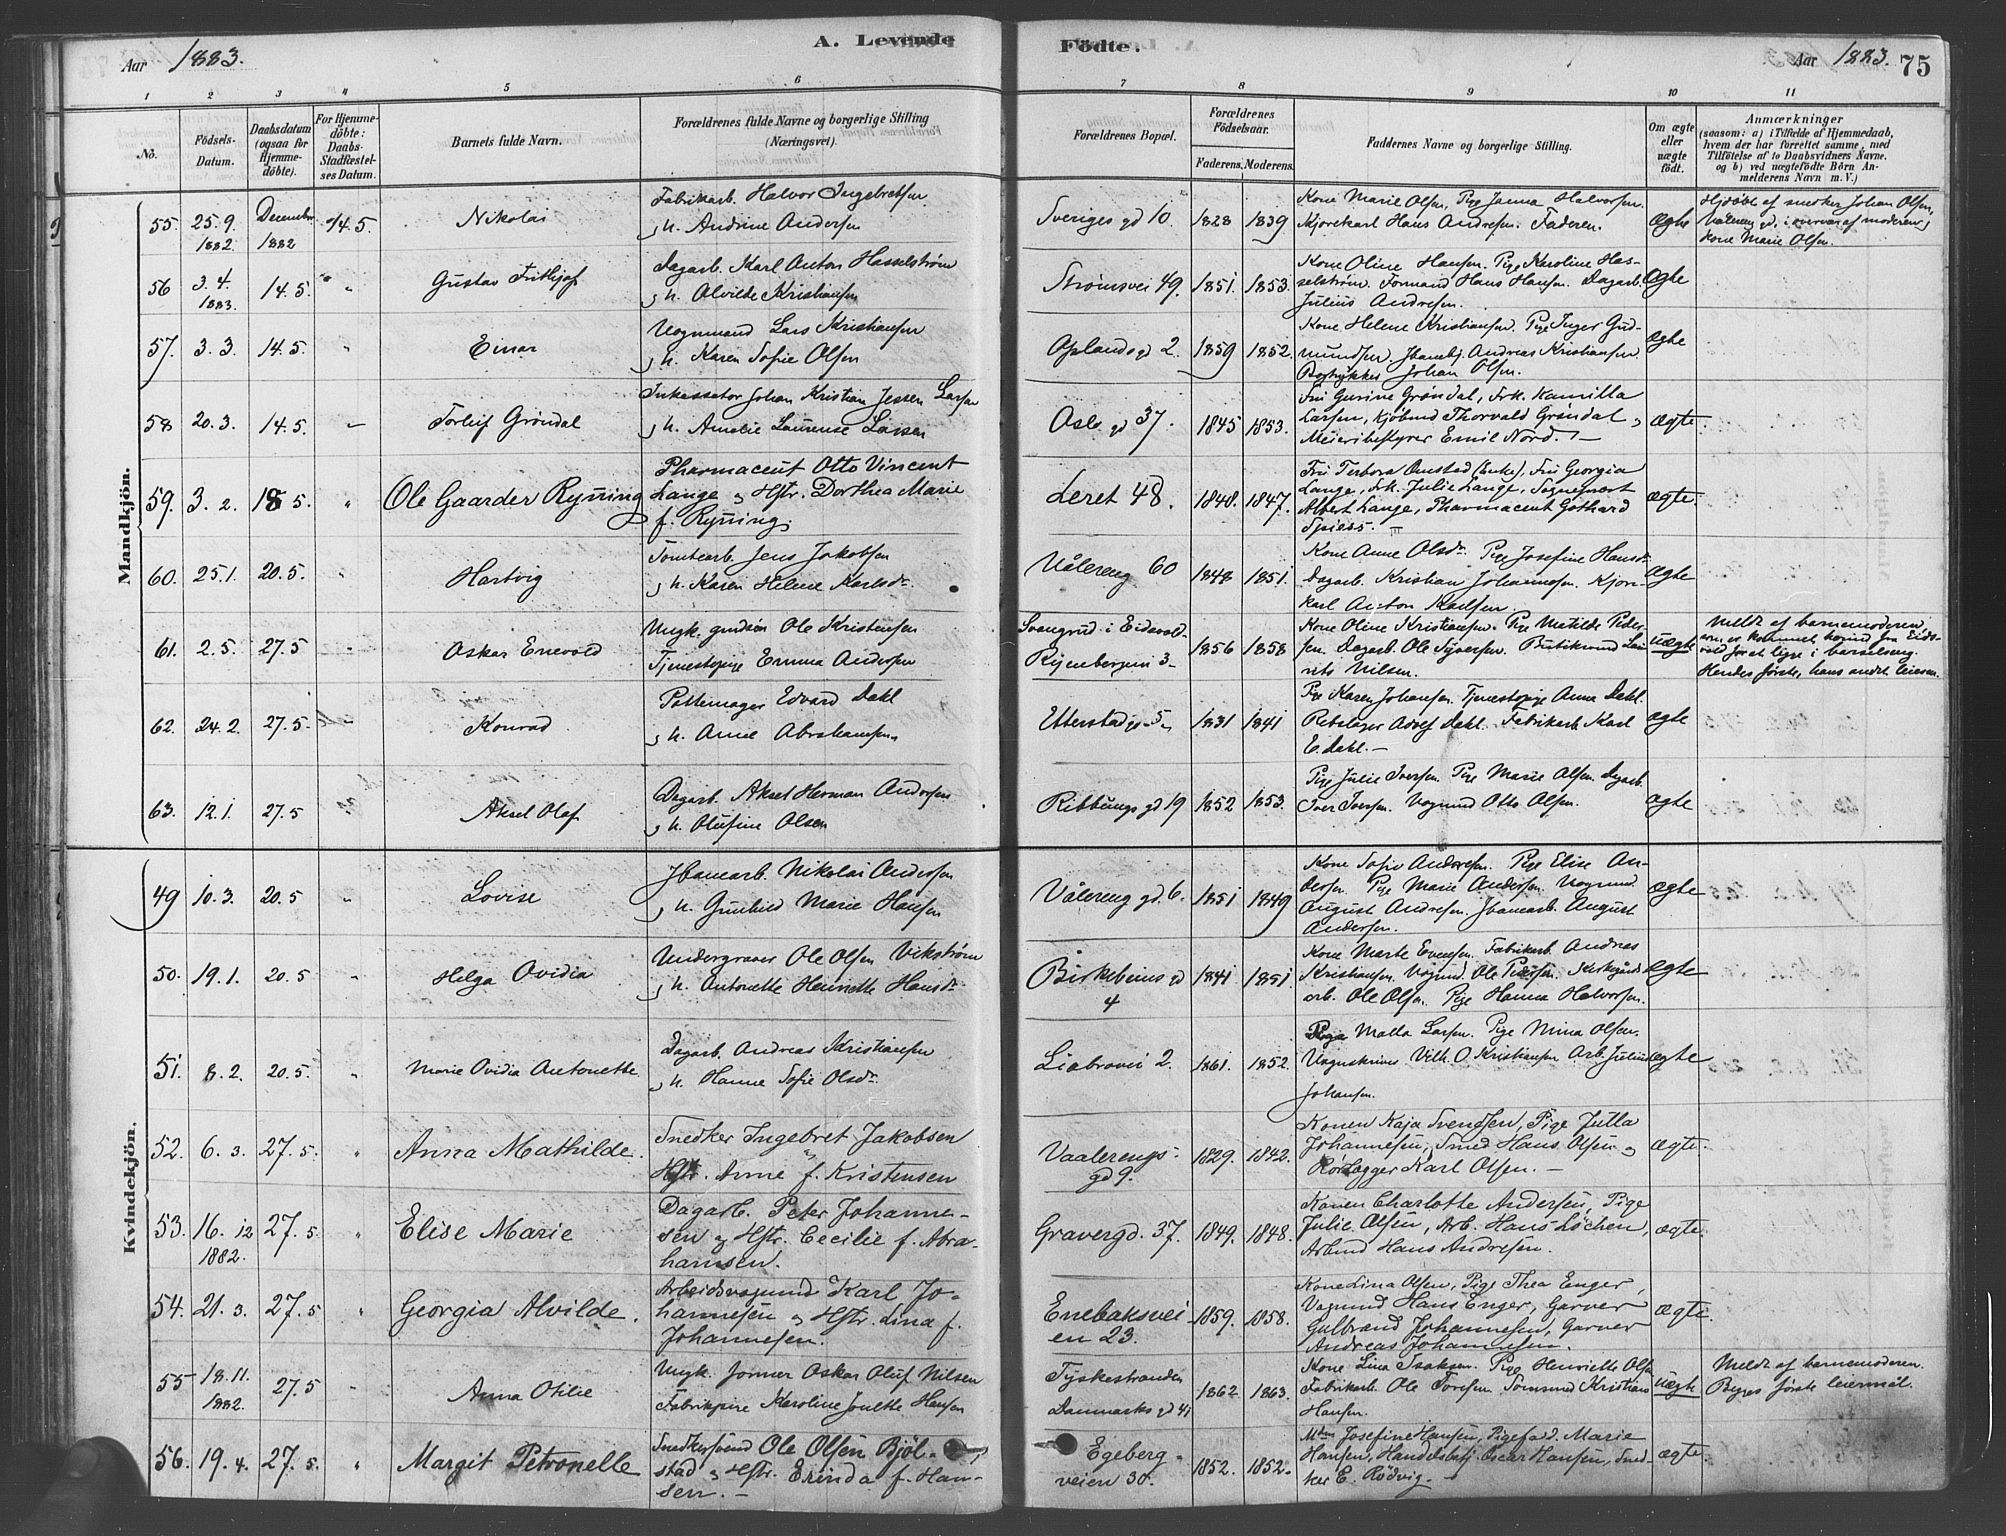 Aar 1883.
A. Levende Födte.
Aar 1883. 75
1 2 3 4 5 6 7 8 9 10 11
No.
Födsels-Datum.
Daabsdatum (ogsaa for Hjemmedöbte).
For Hjemmedöbte: Daabs-Stadfæstelses Datum.
Barnets fulde Navn.
Forældrenes fulde Navne og borgerlige Stilling (Næringsvei).
Forældrenes Bopæl.
Forældrenes Födselsaar.
Faderens. Moderens.
Faddernes Navne og borgerlige Stilling.
Om ægte eller uægte födt.
Anmærkninger
(saasom: a) i Tilfælde af Hjemmedaab,
hvem der har forrettet samme, med
Tilföielse af to Daabsvidners Navne,
og b) ved uægtefödte Börn Anmelderens Navn m. V.)
Mandkjön.
55. 25.9. 1882 December 1882 14.5. Nikolai
Fabrikarb. Halvor Ingebretsen
og h. Andrine Andersen
Sveriges gd 10. 1828 1839
Kone Marie Olsen, Pige Janna Halvorsen.
Kjørekarl Hans Andresen. Faderen.
Ægte
Hjdøbt af snekker Johan Olsen,
Vålereng gd, i nærvær af moderen,
Kone Marie Olsen.
56 3.4. 1883. 14.5. " Gustav Frithjof
Dagarb. Karl Anton Hasselstrøm
og h. Alvilde Kristiansen
Strømsvei 49. 1851. 1853.
Kone Oline Hansen. Pige Karoline Has-
selstrøm. Formand Hans Hansen. Dagarb.
Julius Andresen.
Ægte
57. 3.3. 14.5. " Einar
Vognmand Lars Kristiansen
og h. Karen Sofie Olsen
Oplandsgd 2. 1859 1852.
Kone Helene Kristiansen. Pige Inger Gud-
mundsen. Jbanebtj. Andreas Kristiansen
Bogtrykker Johan Olsen.
Ægte
58 20.3. 14.5. Torleif Grøndal
Inkassator Johan Kristian Jessen Larsen
og h. Amalie Laurense Larsen
Oslo gd 37. 1845 1853.
Fru Gurine Grøndal, Frk. Kamilla
Larsen, Kjøbmd Thorvald Grøndal og
Meieribestyrer Emil Nord. —
ægte.
59. 3. 2. 18 5. " Ole Gaarder Rynning
Pharmaceut Otto Vincent
Lange og Hstr. Dorthea Marie
f. Rynning.
Leret 48. 1848. 1847.
Fru Terbora Onstad (Enke), Fru Georgia
Lange, Frk. Julie Lange, Sogneprest
Albert Lange, Pharmaceut Gothard
Spiess. —
ægte.
60. 25.1. 20.5. " Hartvig
Tomtearb. Jens Jakobsen
og h. Karen Helene Karlsdr
Vålereng 60 1848 1851.
Kone Anne Olsdr. Pige Josefine Hansdr
Dagarb. Kristian Johannesen. Kjøre-
karl Anton Karlsen.
Ægte
61. 2.5. 27.5 " Oskar Enevold
Ungk. Ole Kristensen
Tjenestepige Emma Andersen
i Eidsvold-
Ryenbergveien 3— 1856 1858
Kone Oline Kristiansen. Pige Matilde Peder-
sen. Dagarb. Ole Syversen. Butikmand Lau-
rits Nilsen.
uægte
Meldt af barnemoderen,
som er kommet herind fra Eids-
vold for at ligge i barselseng.
Hendes første, hans andet leierm.
62. 24.2. 27.5. Konrad
Pottemager Edvard Dahl
og h. Anne Abrahamsen
Etterstadgd 5. 1831 1841
Pige Karen Johansen. Tjenestepige Anna Dahl.
Rebslager Adolf Dahl. Fabrikarb. Karl
E. Dahl. —
ægte
63. 12.1. 27.5 Aksel Olaf
Dagarb. Aksel Herman Andersen
og h. Olufine Olsen
Ribbungs gd 19 1852 1853.
Pige Julie Iversen. Pige Marie Olsen. Dagarb.
Iver Iversen. Vognmd Otto Olsen.
ægte
Kvindekjön.
49 10.3. 20.5 Lovise
Jbanearb. Nikolai Andersen
og h. Gunhild Marie Hansen
Vålereng gd. 6. 1851 1849
Kone Sofie Andersen. Pige Elise An-
dersen. Pige Marie Andersen. Vognmd
August Andresen. Jbanearb. August
Andersen.
ægte
50. 19.1. 20.5 " Helga Ovidia
Undergraver Ole Olsen Vikstrøm
og h. Antonette Henriette Hansdr
Birkebeins gd
4 1841 1851
Kone Marte Evensen. Fabrikarb. Andreas
Kristiansen. Vognmd. Ole Pedersen. Kirkegårds
arb. Ole Olsen. Pige Hanna Halvorsen.
ægte
51. 8.2. 20.5. " Marie Ovidia Antonette
Dagarb. Andreas Kristiansen
og h. Hanne Sofie Olsdr
Liabrovei 2. 1861. 1852.
Pige Malla Larsen. Pige Mina Olsen.
Vilh. O. Kristiansen Arb. Julius
Johansen.
ægte
52. 6. 3. 27. 5. " Anna Mathilde.
Snedker Ingebret Jakobsen
og Hstr. Anne f. Kristensen
Vaalerengs-
gd 9. 1829. 1842.
Konen Kaja Svendsen, Pige Julla
Johannesen, Smed Hans Olsen og
Rørlægger Karl Olsen. —
ægte.
53. 16. 12 1882. 27. 5 " Elise Marie
Dagarb. Peter Johanne-
sen og Hstr. Cecilie f. Abra-
hamsen.
Gravergd. 37. 1849. 1848.
Konen Charlotte Andersen, Pige
Julie Olsen, Arb. Hans Løchen,
Arbmd Hans Andresen.
ægte.
54. 21. 3. 27. 5 " Georgia Alvilde.
Arbeidsvognmd Karl Jo-
hannesen og Hstr. Lina f.
Johannesen.
Enebaksvei-
en 23. 1859. 1858.
Kone Lina Olsen, Pige Thea Enger,
Vognmd Hans Enger, Garver
Gulbrand Johannesen, Garver
Andreas Johannesen.
ægte.
55 18.11. 1882. 27.5 Anna Otilie
Ungk. Former Oskar Oluf Nilsen
Fabrikpige Karoline Hansen
Tyskestranden
Danmarks gd 41 1862 1863.
Kone Lina Isaksen. Pige Henriette Olsen
Fabrikarb. Ole Toresen. Tomtemd Kristian
Hansen.
uægte
Meldt af barnemoderen.
Begges første leiermål.
56. 19. 4. 27. 5. " Margit Petronelle
Snedkersvend Ole Olsen Bjøl-
stad og Hstr. Erinda f. Han-
sen. —
Egeberg-
veien 30. 1852. 1852.
Mdm Josefine Hansen, Pige Marie
Hansen, Handelsbtj. Oscar Hansen, Sned-
ker E. Rödvig. —
ægte.